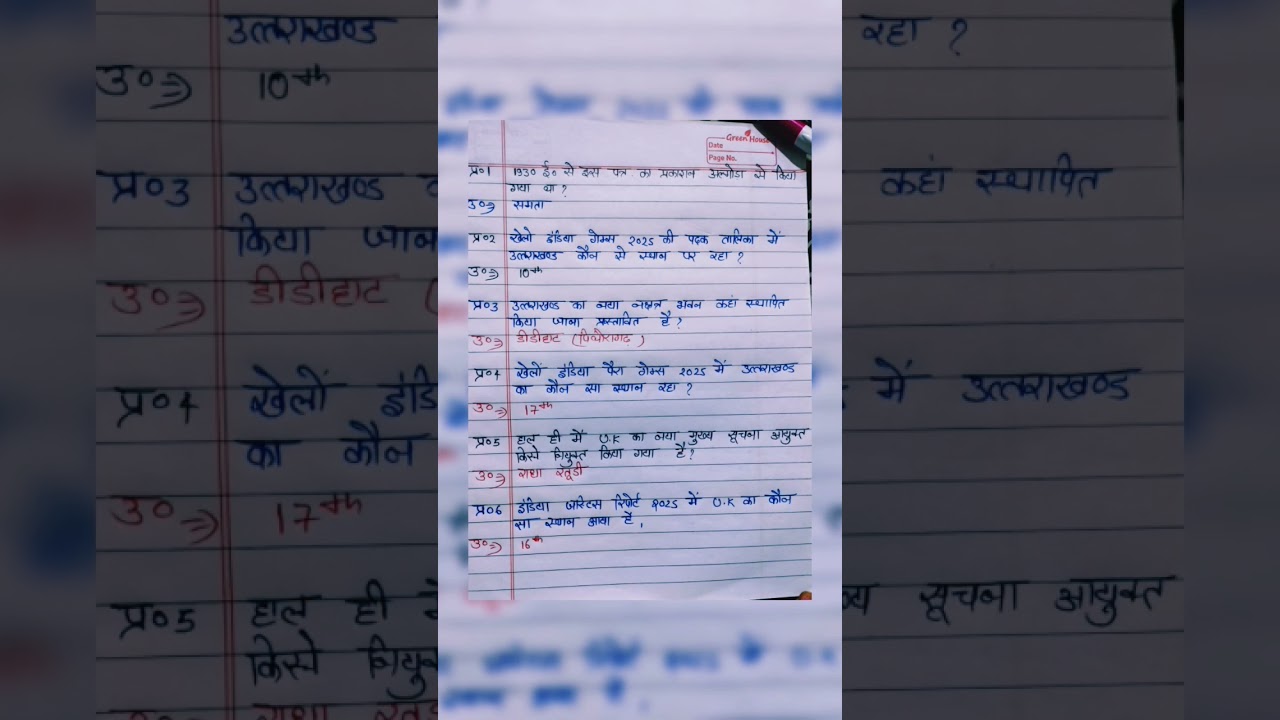 Green House
Date
Page No.
प्र०1 1930 ई० से इस पत्र का प्रकाशन अल्मोडा से किया
गया था ?
उ०⇒ समता
प्र०2 खेलो इंडिया गेम्स 2025 की पदक तालिका में
उत्तराखण्ड कौन से स्थान पर रहा ?
उ०⇒ 10th
प्र०3 उत्तराखण्ड का नया नक्षत्र भवन कहां स्थापित
किया जाना प्रस्तावित है ?
उ०⇒ डीडीहाट (पिथौरागढ़)
प्र०4 खेलों इंडिया पैरा गेम्स 2025 में उत्तराखण्ड
का कौन सा स्थान रहा ?
उ०⇒ 17th
प्र०5 हाल ही में U.K का नया मुख्य सूचना आयुक्त
किसे नियुक्त किया गया है ?
उ०⇒ राधा रतूडी
प्र०6 इंडिया जस्टिस रिपोर्ट 2025 में U.K का कौन
सा स्थान आया है ,
उ०⇒ 16th